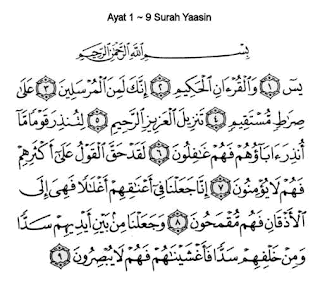 Ayat 1 ~ 9 Surah Yaasin
بِسْمِ اللَّهِ الرَّحْمَٰنِ الرَّحِيمِ
يسٓ ﴿١﴾ وَالْقُرْءَانِ الْحَكِيمِ ﴿٢﴾ إِنَّكَ لَمِنَ الْمُرْسَلِينَ ﴿٣﴾ عَلَىٰ
صِرَٰطٍ مُّسْتَقِيمٍ ﴿٤﴾ تَنزِيلَ الْعَزِيزِ الرَّحِيمِ ﴿٥﴾ لِتُنذِرَ قَوْمًا مَّآ
أُنذِرَ ءَابَآؤُهُمْ فَهُمْ غَٰفِلُونَ ﴿٦﴾ لَقَدْ حَقَّ الْقَوْلُ عَلَىٰٓ أَكْثَرِهِمْ
فَهُمْ لَا يُؤْمِنُونَ ﴿٧﴾ إِنَّا جَعَلْنَا فِىٓ أَعْنَٰقِهِمْ أَغْلَٰلًا فَهِىَ إِلَى
الْأَذْقَانِ فَهُم مُّقْمَحُونَ ﴿٨﴾ وَجَعَلْنَا مِنۢ بَيْنِ أَيْدِيهِمْ سَدًّا
وَمِنْ خَلْفِهِمْ سَدًّا فَأَغْشَيْنَٰهُمْ فَهُمْ لَا يُبْصِرُونَ ﴿٩﴾